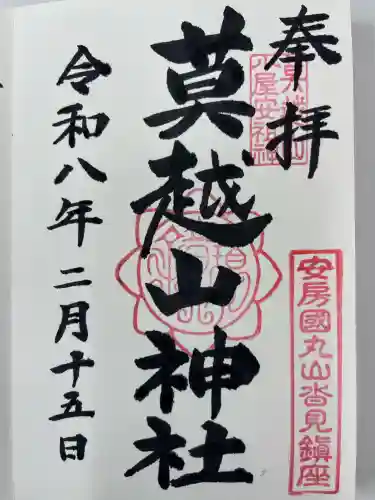 奉拝
安房國丸山沓見鎮座
莫越山神社
令和八年二月十五日